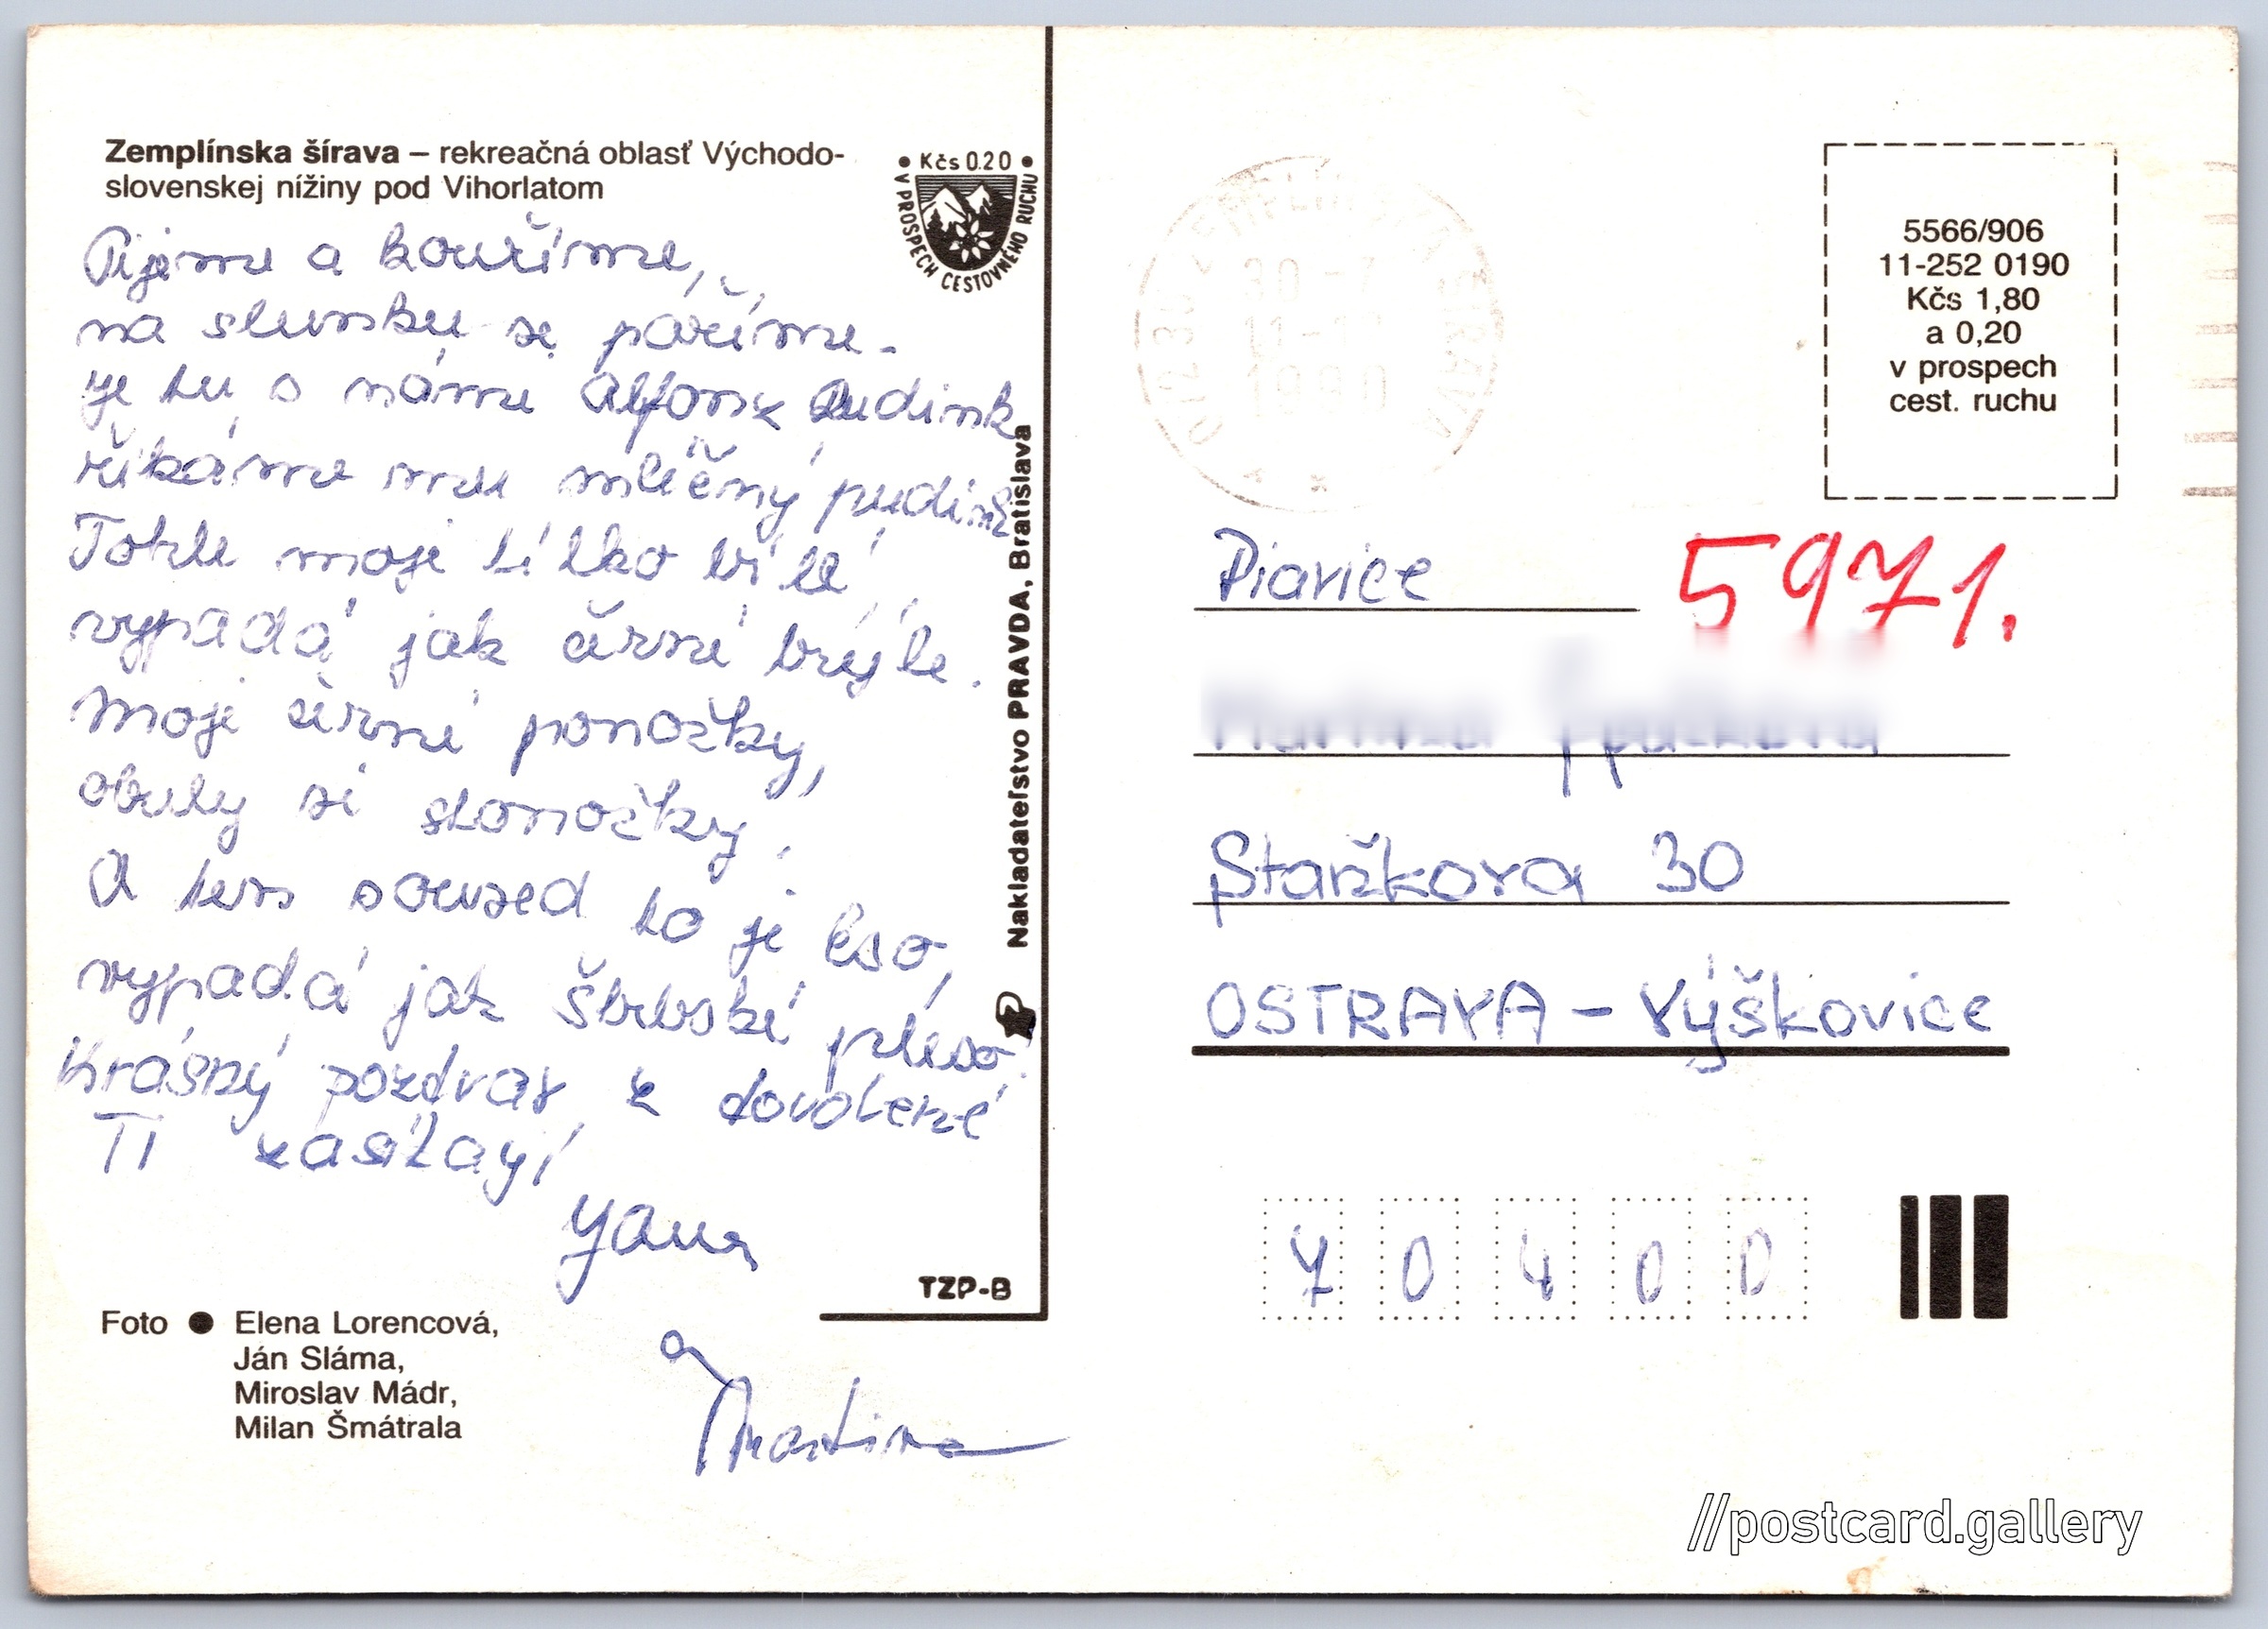 Zemplínska šírava – rekreačná oblasť Východo-
slovenskej nížiny pod Vihorlatom
• Kčs 0.20 •
V PROSPECH CESTOVNÉHO RUCHU
Pijeme a kouříme,
na slunsku se páříme.
je tu s námi Alfons Pudink
říkáme mu mléčný pudink
Tohle moje tílko bílé,
vypadá jak černé brýle.
Moje černé ponožky,
obuly si stonožky.
A ten soused to je eso,
vypadá jak Štrbské pleso!
Krásný pozdrav z dovolené
TI zasílají
Yana
a
Martina
Nakladateľstvo PRAVDA, Bratislava
TZP-B
Foto ● Elena Lorencová,
Ján Sláma,
Miroslav Mádr,
Milan Šmátrala
ZEMPLÍNSKA ŠÍRAVA
30.-7.
1990
5566/906
11-252 0190
Kčs 1,80
a 0,20
v prospech
cest. ruchu
5971.
Staňkova 30
OSTRAVA – Výškovice
70400
//postcard.gallery